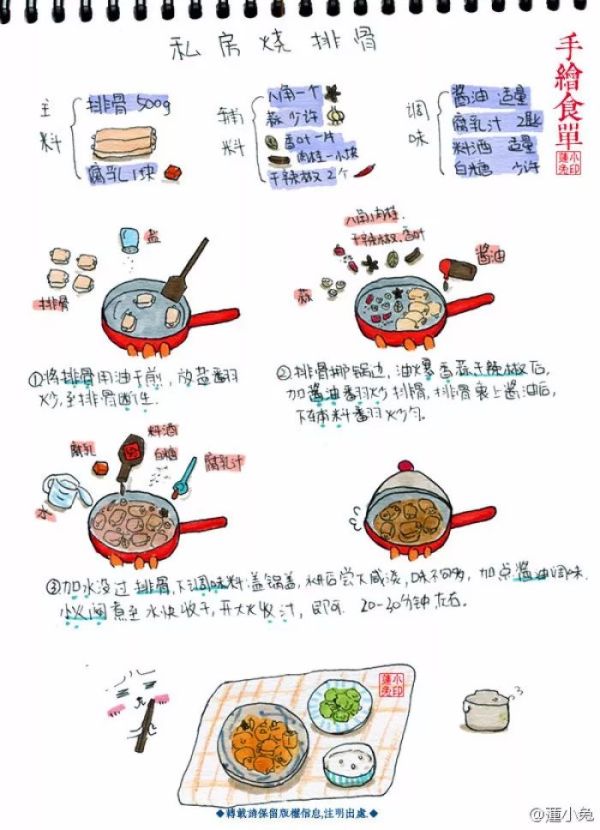 私房烧排骨
手繪食單
小蓮印兔
主料
排骨 500g
腐乳1块
辅料
八角一个
蒜少许
香叶一片
肉桂一小块
干辣椒2个
调味
酱油 适量
腐乳汁 2匙
料酒 适量
白糖 少许
盐
排骨
八角,肉桂,
干辣椒.香叶
酱油
蒜
①将排骨用油干煎,放盐翻
炒,至排骨断生.
②排骨挪锅边,油爆香蒜干辣椒后,
加酱油翻炒排骨,排骨裹上酱油后,
下辅料翻炒匀.
腐乳
料酒
白糖
腐乳汁
水
③加水没过排骨,下调味料.盖锅盖,水开后尝下咸淡,味不够,加点酱油调味.
小火闷煮至水快收干,开大火收汁,即可. 20-30分钟左右.
小蓮印兔
◆轉載請保留版權信息,注明出處◆
@蓮小兔